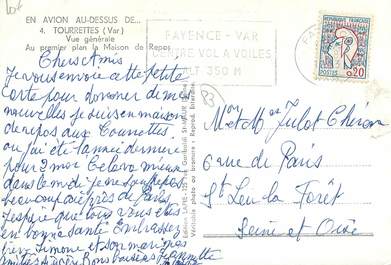 EN AVION AU-DESSUS DE...
4. TOURRETTES (Var)
Vue générale
Au premier plan la Maison de Repos
Chers Amis
Je vous envoie cette petite
Carte pour donner de mes
nouvelles je suis en maison
de repos aux Tourrettes
ou j'ai été l'année dernière
pour 2 mois Cela va mieux
dans le midi je me repose
beaucoup près de
j'espère que tous vous êtes
en bonne santé Embrassez
bien Simone et son mari
Bons baisers
FAYENCE - VAR
CENTRE VOL A VOILES
ALT 350 M
REPUBLIQUE FRANCAISE
POSTES 0,20
Mr et Mme Julot Cheron
6 rue de Paris
St Leu la Forêt
Seine et Oise